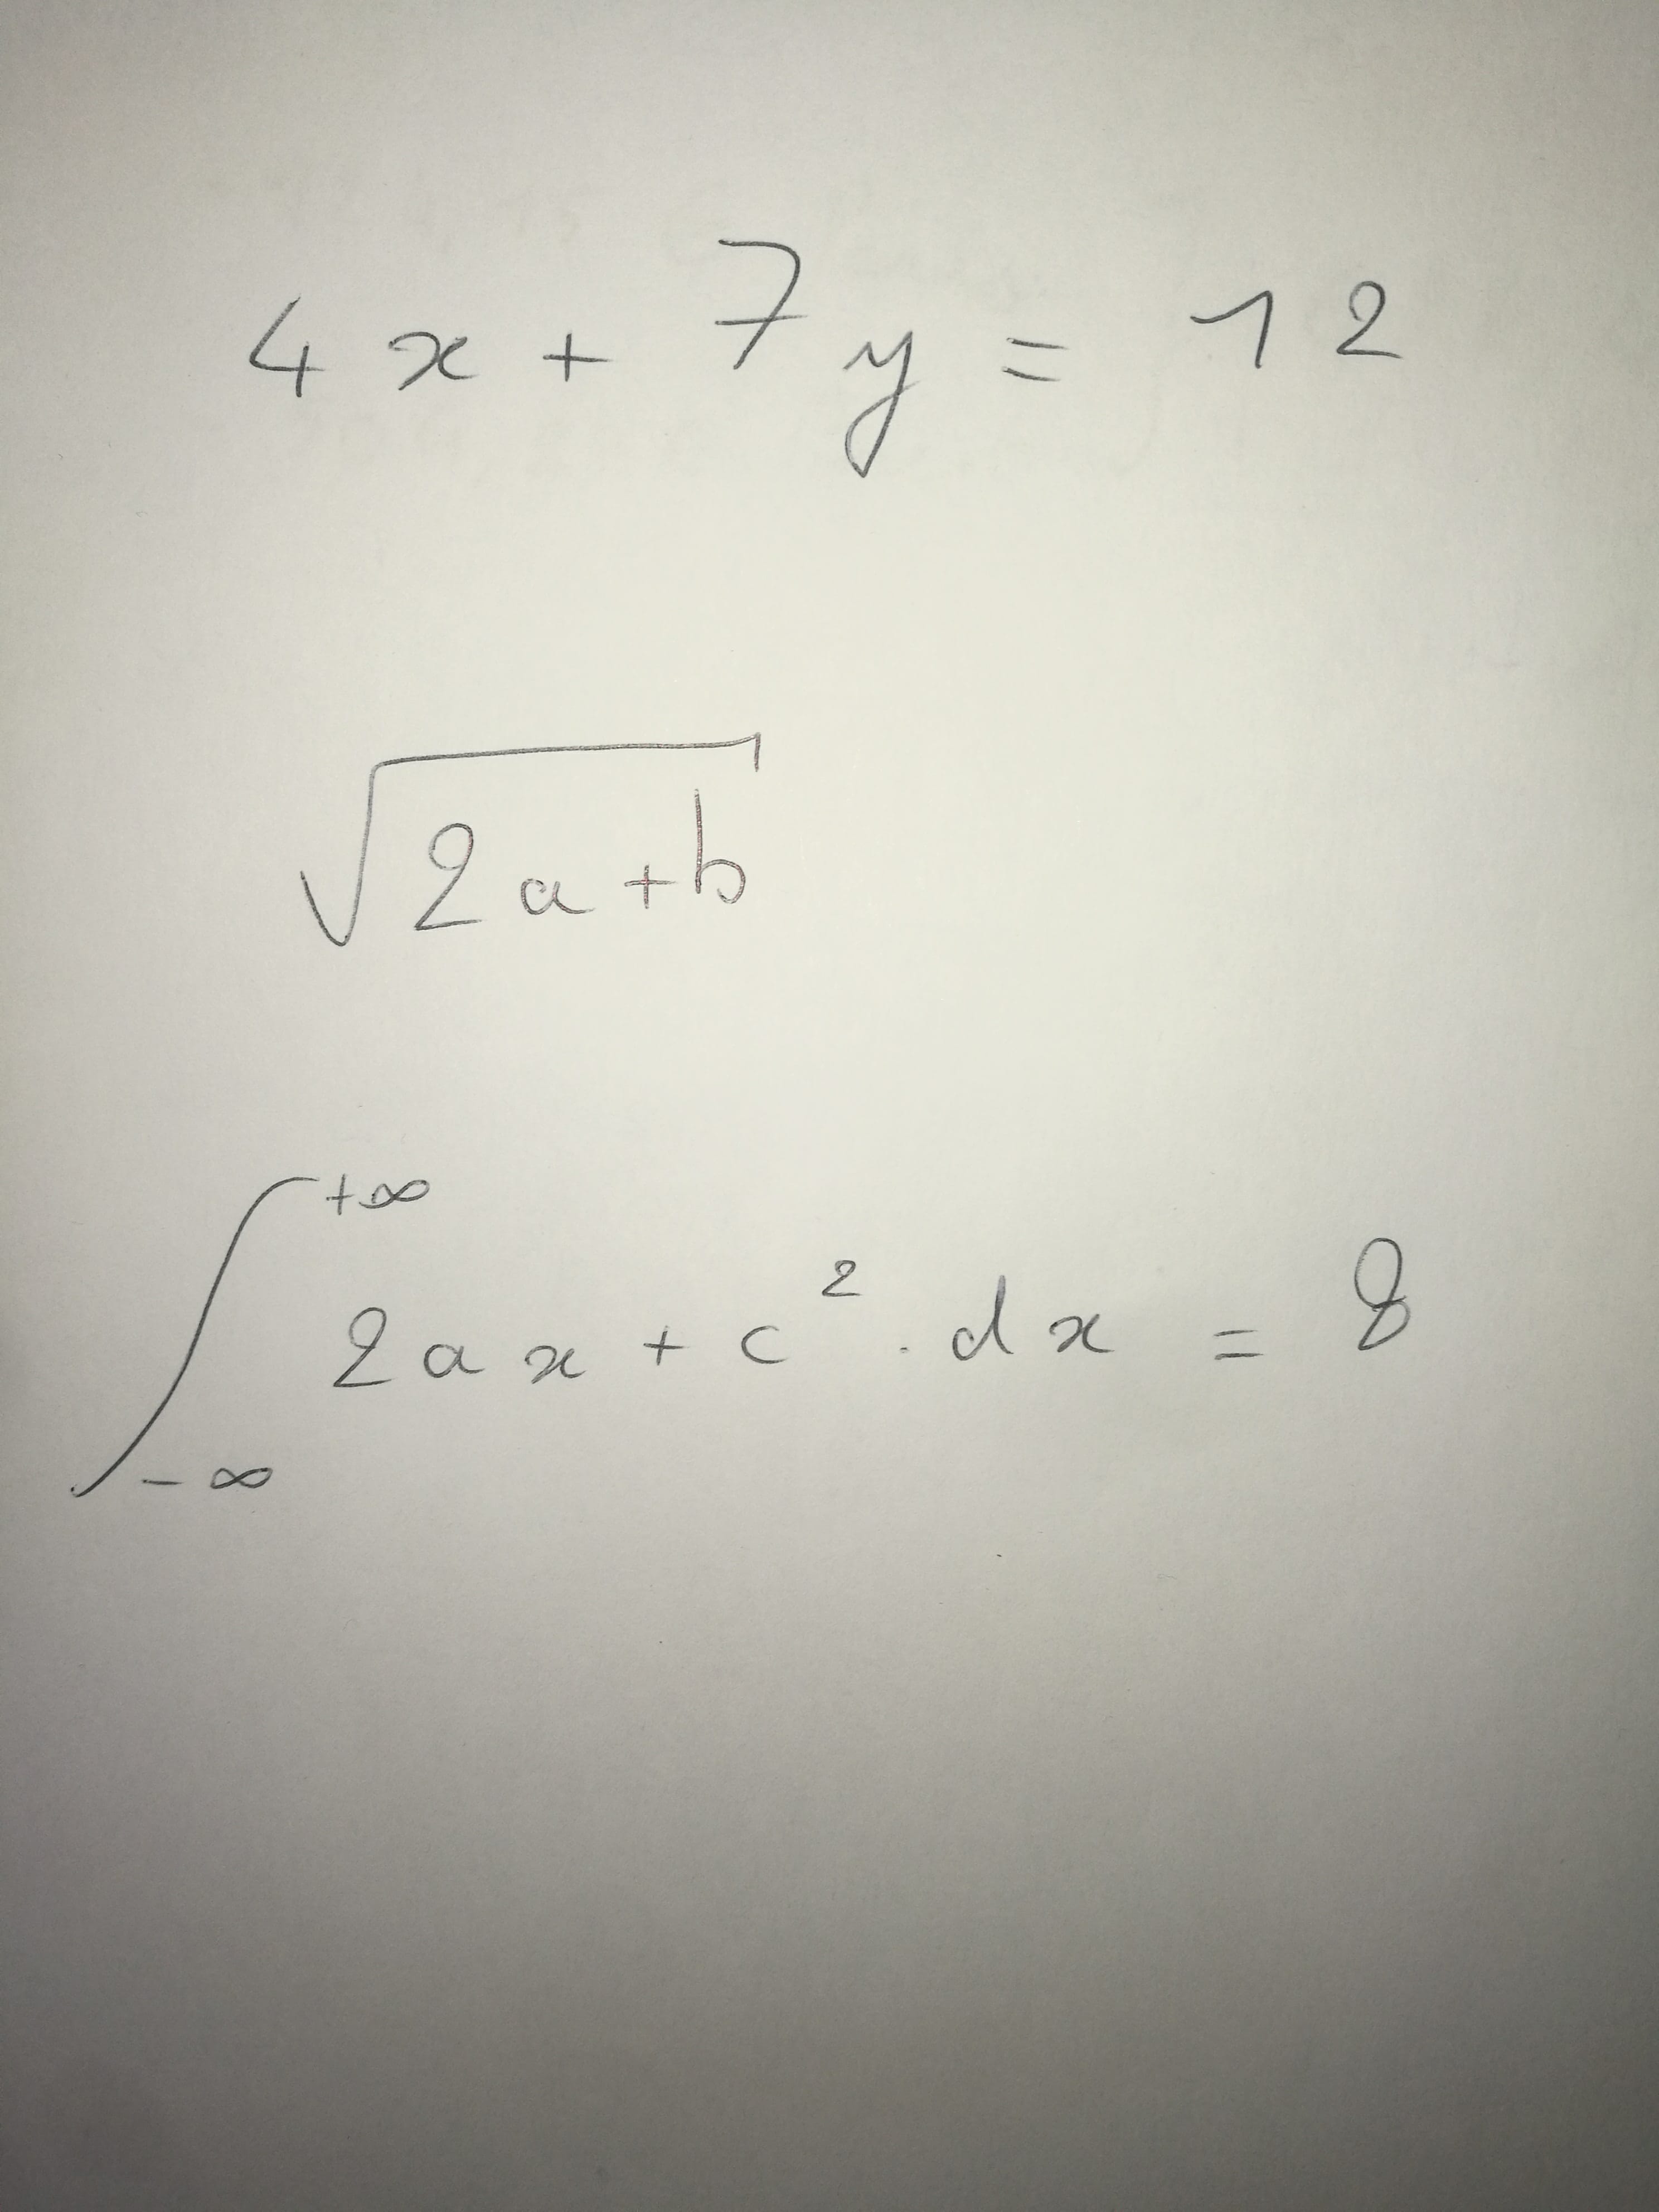 4x + 7y = 12
√(2a+b)
∫_{-∞}^{+∞} 2ax + c² . dx = 8